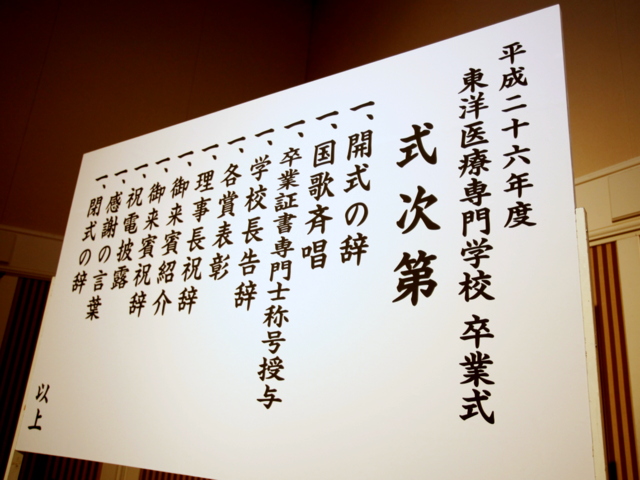 平成二十六年度
東洋医療専門学校 卒業式
式次第
一、開式の辞
一、国歌斉唱
一、卒業証書専門士称号授与
一、学校長告辞
一、各賞表彰
一、理事長祝辞
一、御来賓紹介
一、御来賓祝辞
一、祝電披露
一、感謝の言葉
一、閉式の辞
以上